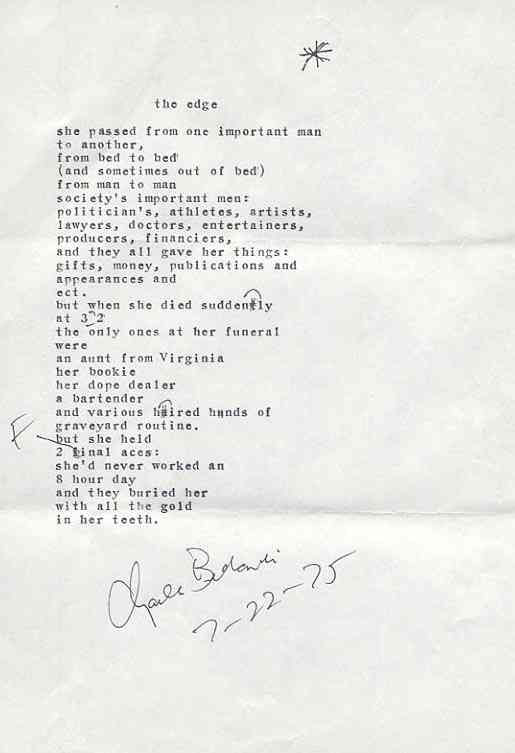 the edge
she passed from one important man
to another,
from bed to bed
(and sometimes out of bed)
from man to man
society's important men:
politician's, athletes, artists,
lawyers, doctors, entertainers,
producers, financiers,
and they all gave her things:
gifts, money, publications and
appearances and
ect.
but when she died suddenly
at 32
the only ones at her funeral
were
an aunt from Virginia
her bookie
her dope dealer
a bartender
and various hired hands of
graveyard routine.
F
but she held
2 final aces:
she'd never worked an
8 hour day
and they buried her
with all the gold
in her teeth.
Charles Bukowski
7-22-75